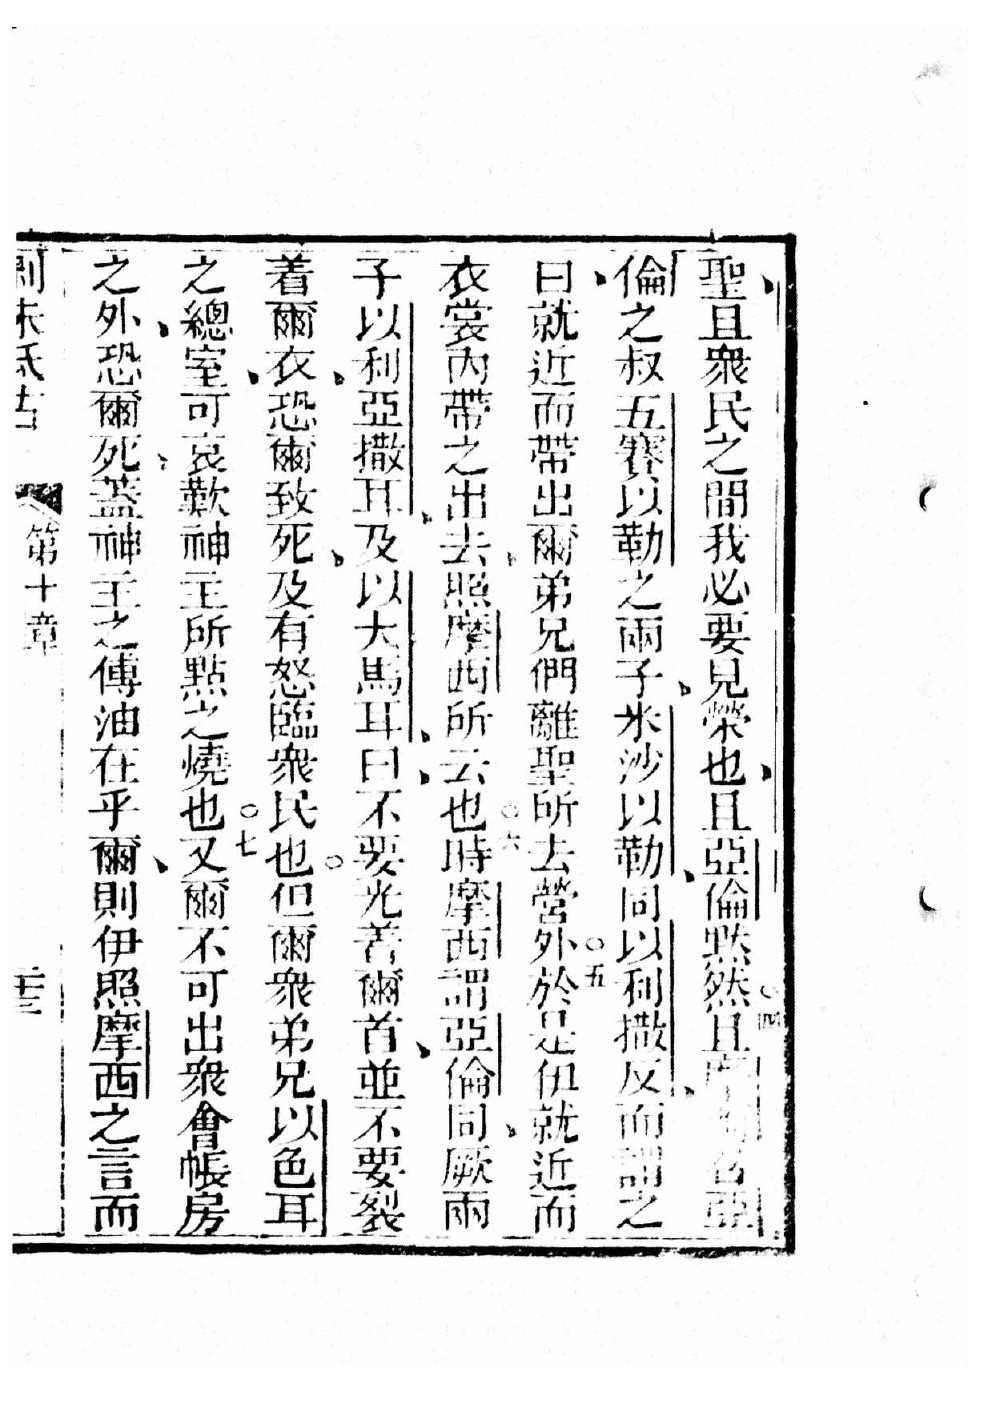 聖且衆民之間我必要見榮也且亞倫默然且摩西召亞
倫之叔五賽以勒之兩子米沙以勒同以利撒反而謂之
曰就近而帶出爾弟兄們離聖所去營外於是伊就近而
衣裳內帶之出去照摩西所云也時摩西謂亞倫同厥兩
子以利亞撒耳及以大馬耳曰不要光著爾首並不要裂
着爾衣恐爾致死及有怒臨衆民也但爾衆弟兄以色耳
之總室可哀歎神主所點之燒也又爾不可出衆會帳房
之外恐爾死蓋神主之傅油在乎爾則伊照摩西之言而
第十章
四
五
六
七